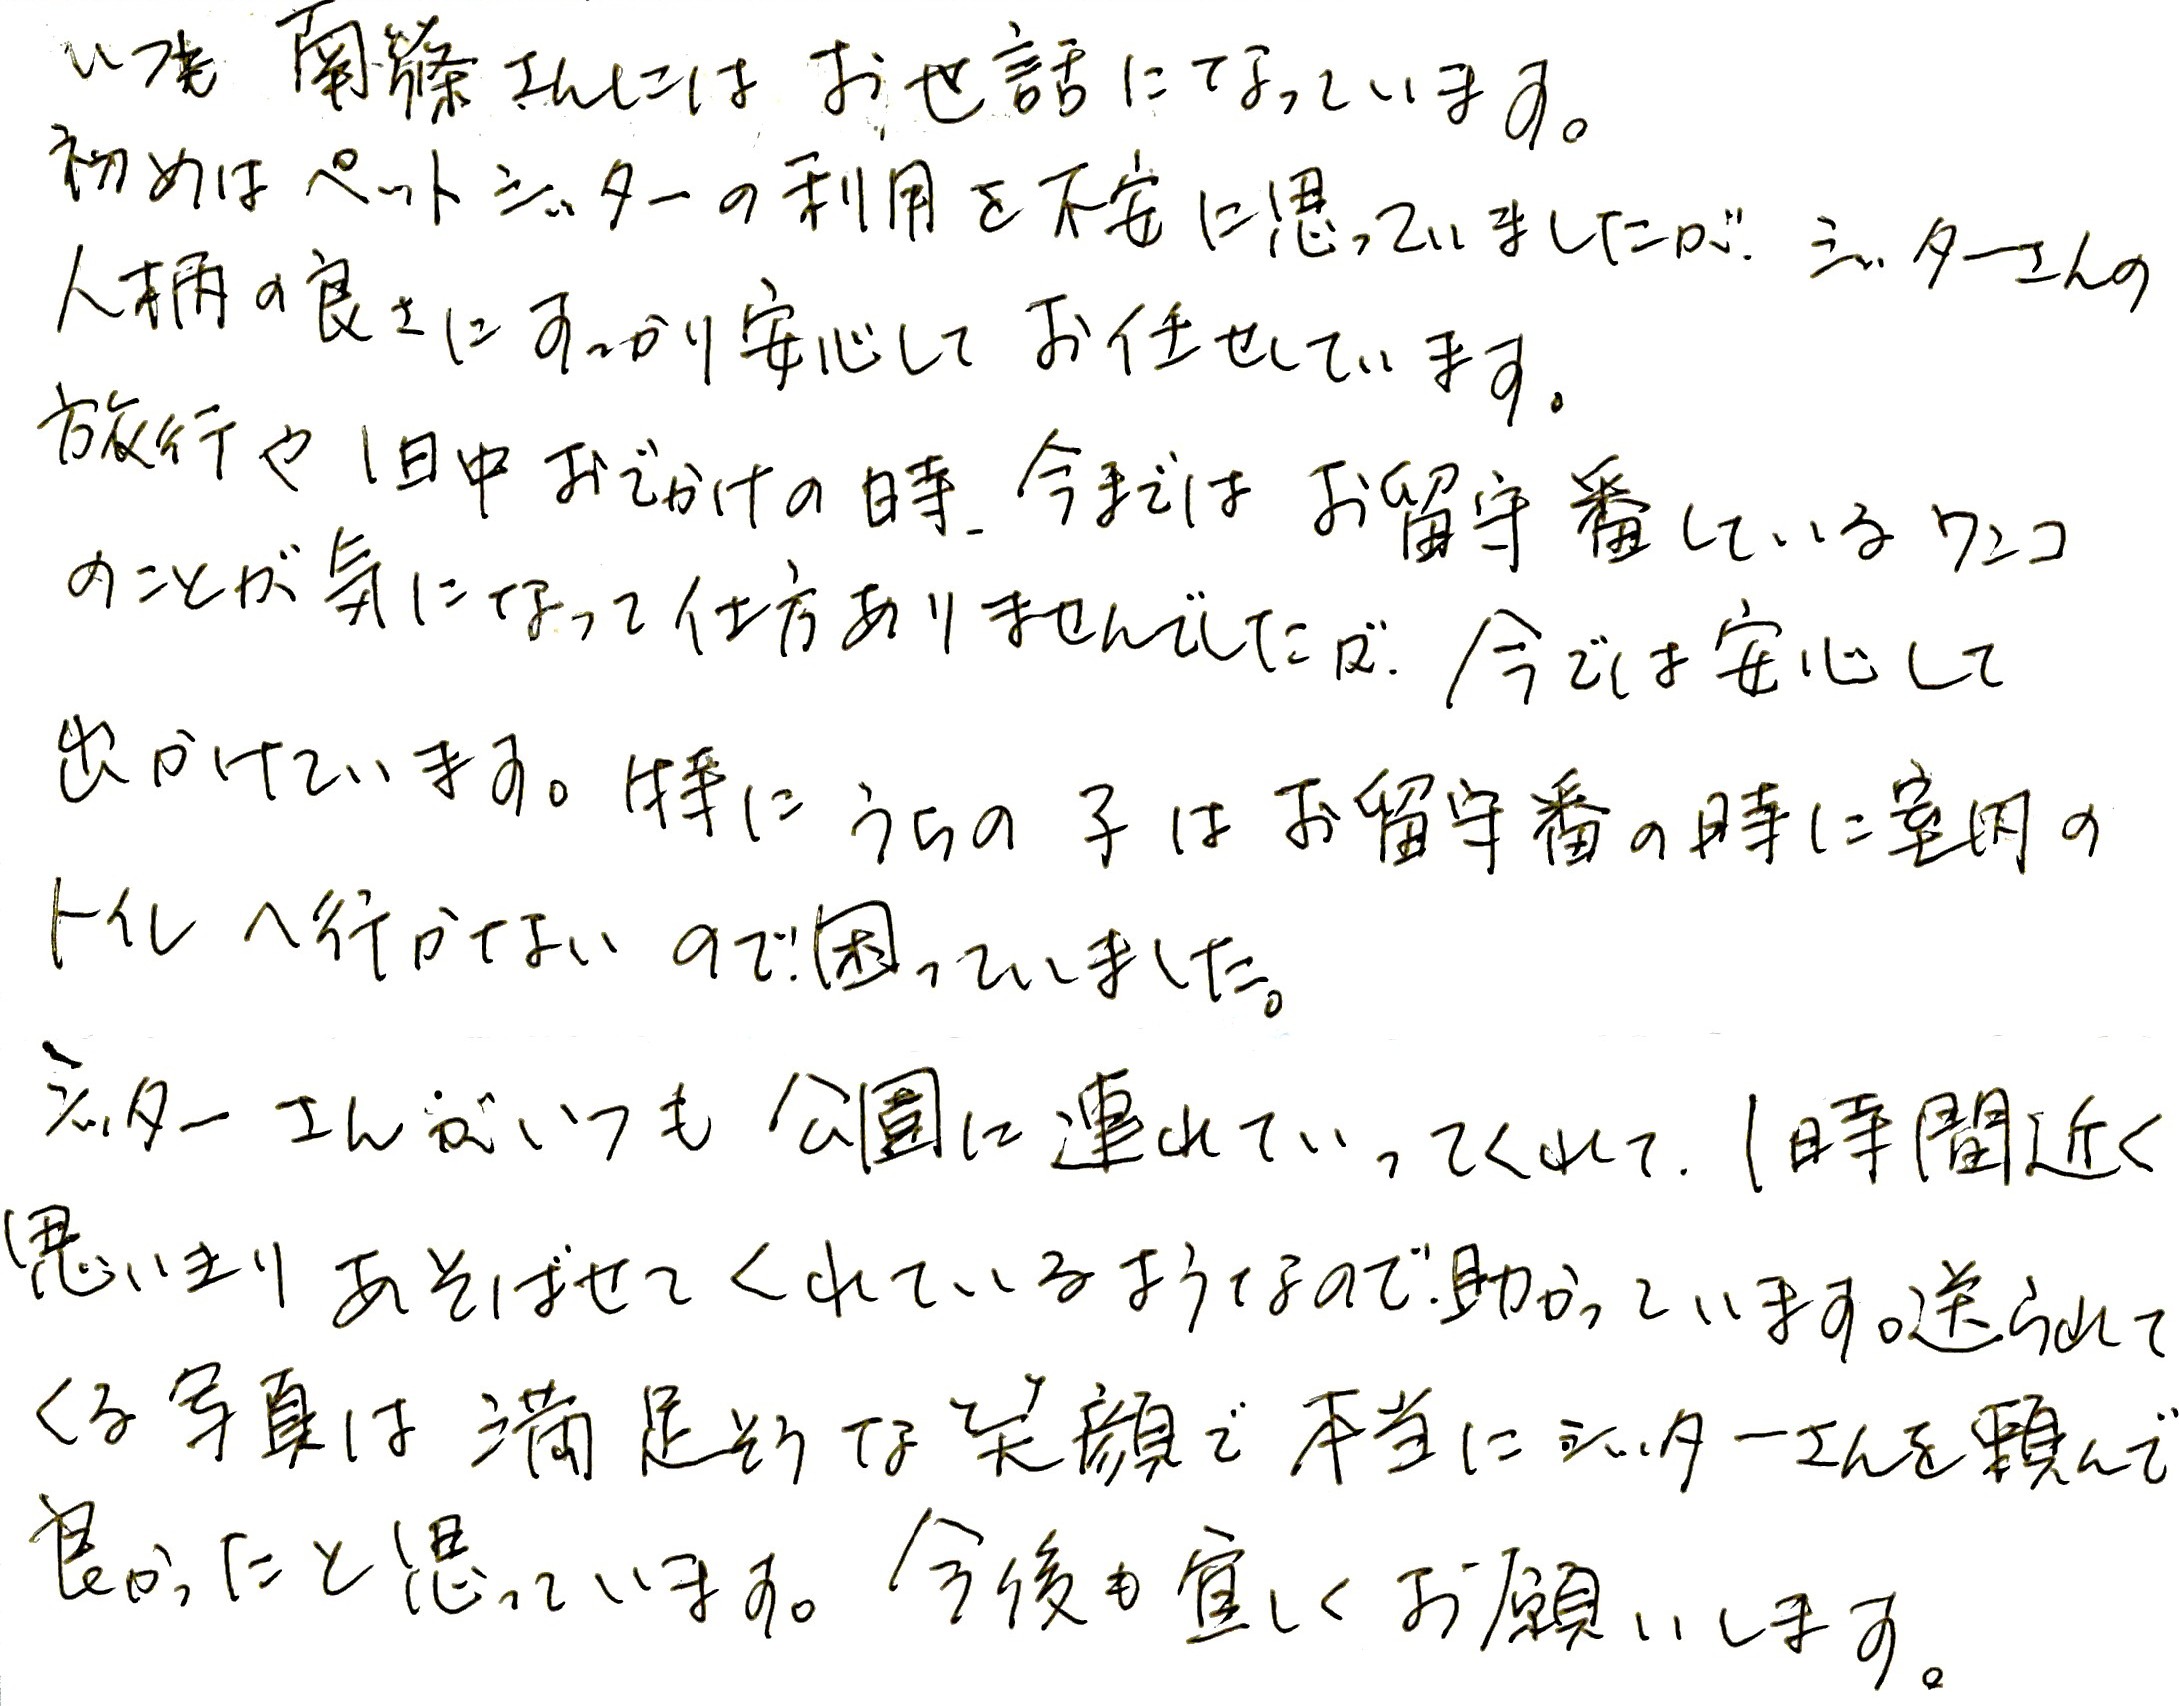 いつも 南條さんには お世話になっています。
初めは ペットシッターの利用を不安に思っていましたが、シッターさんの
人柄の良さに すっかり安心して お任せしています。
旅行や 1日中 おでかけの時、今までは お留守番している ワンコ
のことが気になって仕方ありませんでしたが、今では安心して
出かけています。特に うちの子は お留守番の時に室内の
トイレへ行かないので、困っていました。
シッターさんがいつも 公園に連れていってくれて、1時間近く
思いきり あそばせてくれているようなので、助かっています。送られて
くる写真は 満足そうな笑顔で 本当にシッターさんを頼んで
良かったと思っています。今後も宜しくお願いします。